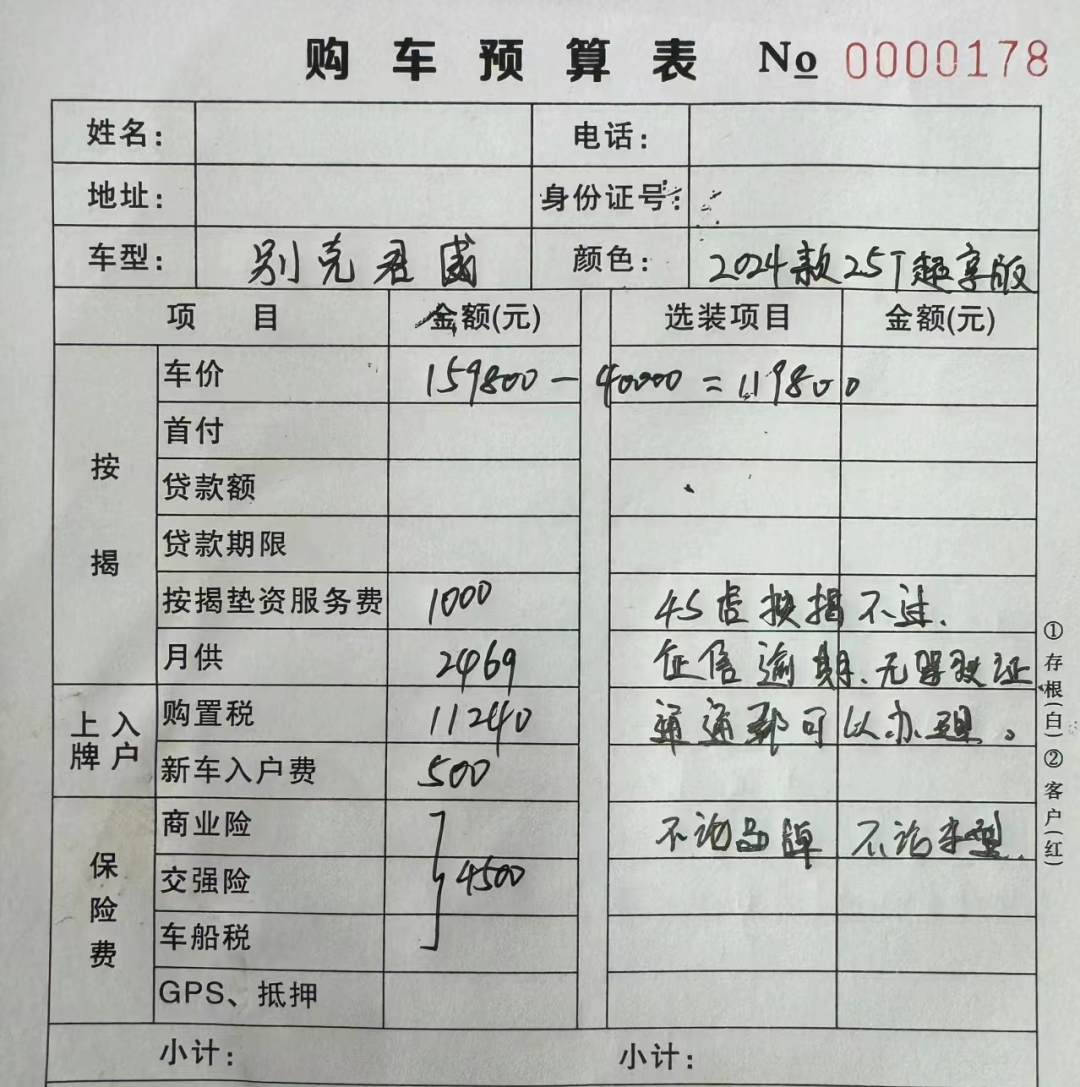 购车预算表 No 0000178
姓名： 电话：
地址： 身份证号：
车型： 别克君威 颜色： 2024款25T超享版
项目 金额(元) 选装项目 金额(元)
按揭
车价 159800－40000＝119800
首付
贷款额
贷款期限
按揭垫资服务费 1000 4S店按揭不过.
月供 2469 征信逾期、无驾驶证
上牌入户
购置税 11240 通通都可以办理。
新车入户费 500
保险费
商业险 不论品牌 不论车型.
交强险 4500
车船税
GPS、抵押
小计： 小计：
①存根(白)②客户(红)